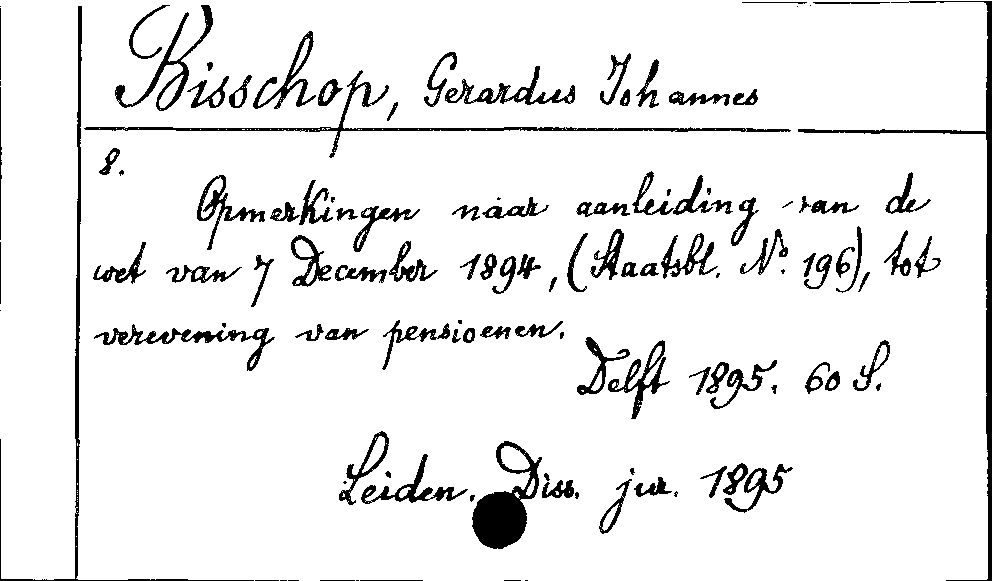 Bisschop, Gerardus Johannes
8.
Opmerkingen naar aanleiding van de
wet van 7 December 1894, (Staatsbl. No. 196), tot
verevening van pensioenen.
Delft 1895. 60 S.
Leiden. Diss. jur. 1895